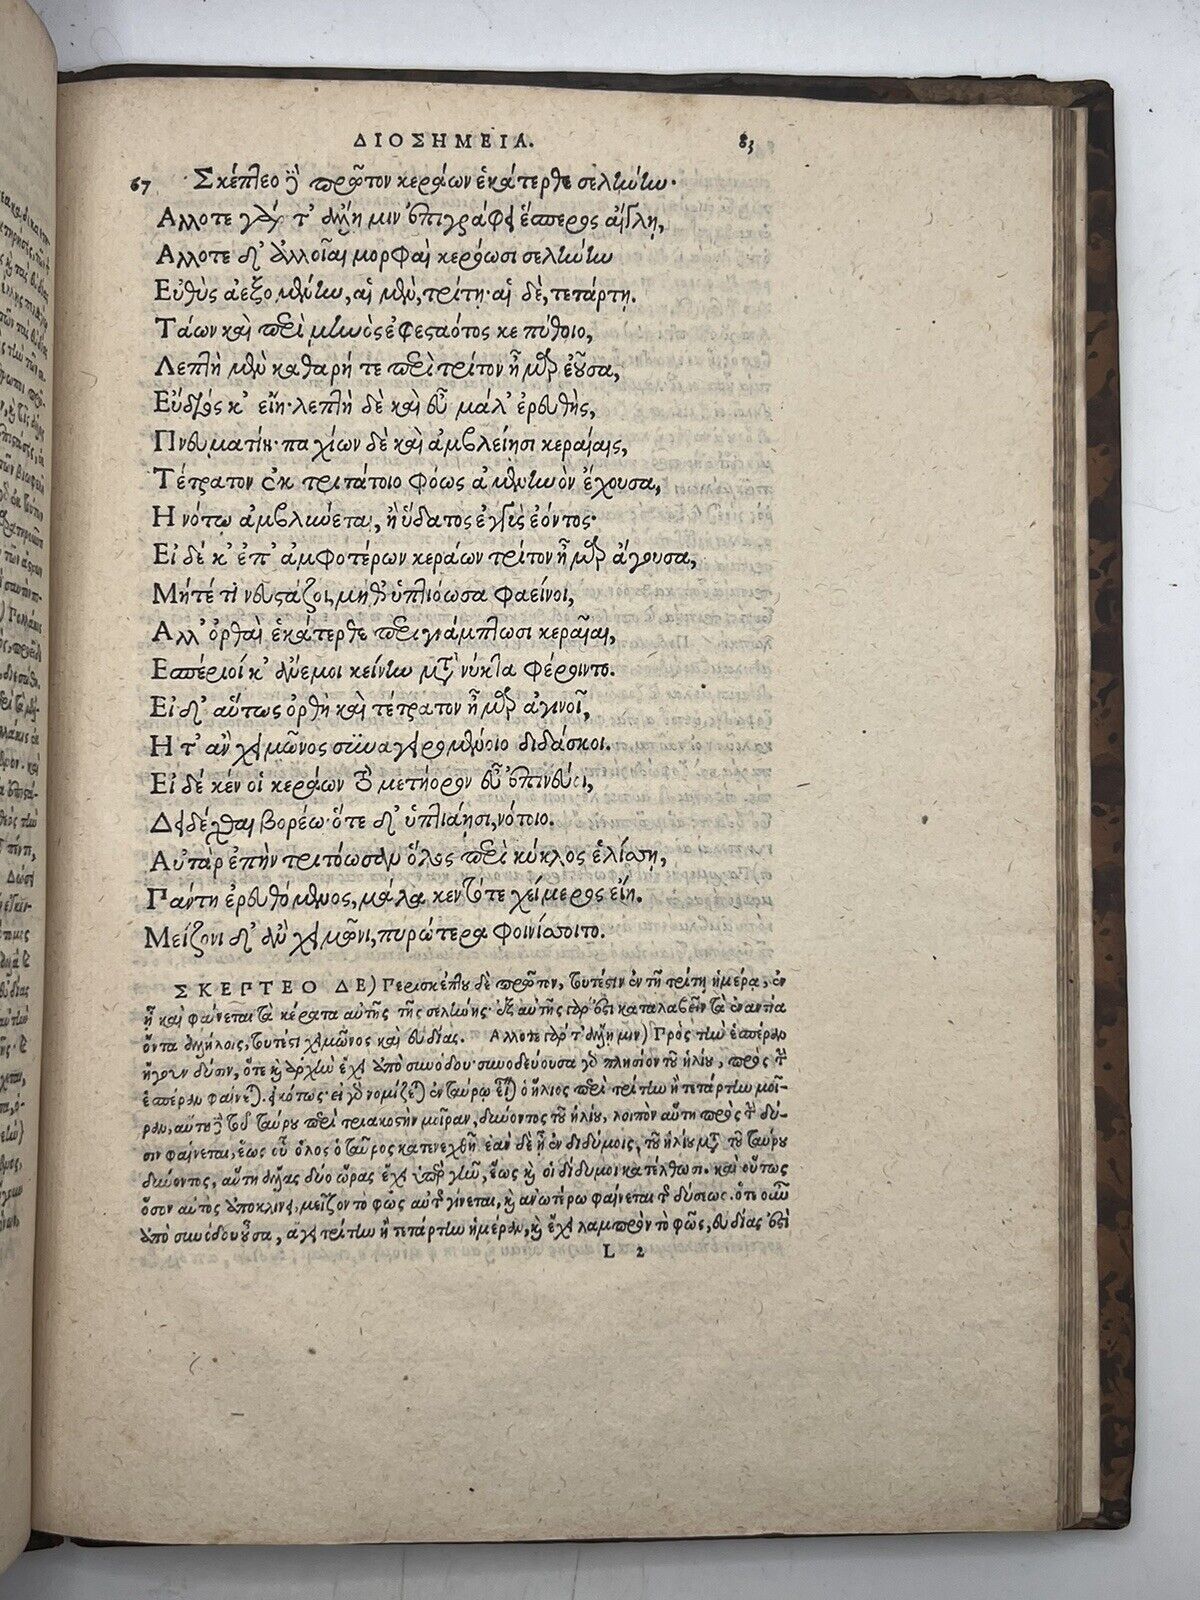 ΔΙΟΣΗΜΕΙΑ. 83
67 Σκέπτεο δὲ πρῶτον κεράων ἑκάτερθε σελήνην·
Αλλοτε γάρ τ' ἄλλη μιν ἐπιγράφει ἕσπερος αἴγλη,
Αλλοτε δ' ἀλλοῖαι μορφαὶ κερόωσι σελήνην
Εὐθὺς ἀεξομένην, αἱ μὲν, τρίτη· αἱ δὲ, τετάρτη.
Τάων καὶ περὶ μηνὸς ἐφεσταότος κε πύθοιο,
Λεπτὴ μὲν καθαρή τε περὶ τρίτον ἦμαρ ἐοῦσα,
Εὔδιός κ' εἴη· λεπτὴ δὲ καὶ εὖ μάλ' ἐρευθὴς,
Πνευματίη· παχίων δὲ καὶ ἀμβλείῃσι κεραίαις,
Τέτρατον ἐκ τριτάτοιο φόως ἀμενηνὸν ἔχουσα,
Η νότῳ ἀμβλύνεται, ἢ ὕδατος ἐγγὺς ἐόντος·
Εἰ δέ κ' ἐπ' ἀμφοτέρων κεράων τρίτον ἦμαρ ἄγουσα,
Μήτέ τι νευστάζοι, μήθ' ὑπτιόωσα φαείνοι,
Αλλ' ὀρθαὶ ἑκάτερθε περιγνάμπτωσι κεραῖαι,
Εσπέριοί κ' ἄνεμοι κείνην μετὰ νύκτα φέροιντο.
Εἰ δ' αὔτως ὀρθὴ καὶ τέτρατον ἦμαρ ἀγινοῖ,
Η τ' ἂν χειμῶνος συναγειρομένοιο διδάσκοι.
Εἰ δέ κέν οἱ κεράων τὸ μετήορον εὖ ἐπινεύει,
Δειδέχθαι βορέω· ὅτε δ' ὑπτιάησι, νότοιο.
Αὐτὰρ ἐπὴν τριτόωσαν ὅλος περὶ κύκλος ἑλίσσῃ,
Πάντη ἐρευθόμενος, μάλα κεν τότε χείμερος εἴη.
Μείζονι δ' ἂν χειμῶνι, πυρώτερα φοινίσσοιτο.
ΣΚΕΠΤΕΟ ΔΕ) Περισκέπτου δὲ πρῶτον, τουτέστιν ἐν τῇ τρίτῃ ἡμέρᾳ, ἐν
ᾗ καὶ φαίνεται τὰ κέρατα αὐτῆς τῆς σελήνης· ἐξ αὐτῆς γάρ ἐστι καταλαβεῖν τὰ ἐναντία
ὄντα ἀλλήλοις, τουτέστι χειμῶνος καὶ εὐδίας. Αλλοτε γάρ τ' ἄλλη μιν) Πρὸς τὴν ἑσπέραν
ἤγουν δύσιν, ὅτε καὶ ἀρχὴν ἔχει ἀπὸ συνόδου· συνοδεύουσα γὰρ πλησίον τοῦ ἡλίου, πρὸς τὴν
ἑσπέραν φαίνεται. εἰκότως· εἰ γὰρ νομίζεται ἐν ταύρῳ εἶναι ὁ ἥλιος περὶ τρίτην ἢ τετάρτην μοῖ-
ραν, αὐτοῦ δὲ τοῦ ταύρου περὶ τριακοστὴν μοῖραν, δύνοντος τοῦ ἡλίου, λοιπὸν αὕτη πρὸς τὴν δύ-
σιν φαίνεται, ἕως οὗ ὅλος ὁ ταῦρος κατενεχθῇ· ἐὰν δὲ ᾖ ἐν διδύμοις, τοῦ ἡλίου μετὰ τοῦ ταύρου
δύνοντος, αὕτη ἄλλας δύο ὥρας ἔχει ὑπὲρ γῆν, ἕως καὶ οἱ δίδυμοι κατέλθωσι· καὶ οὕτως
ὅσον αὐτὸς ἀποκλίνει, μεῖζον τὸ φῶς αὐτῆς γίνεται, καὶ ἀνωτέρω φαίνεται τῆς δύσεως. ὅτε οὖν
ἀπὸ συνόδου οὖσα, ἄγει τρίτην ἢ τετάρτην ἡμέραν, καὶ ἔχει λαμπρὸν τὸ φῶς, εὐδίας ἐστὶ
L 2